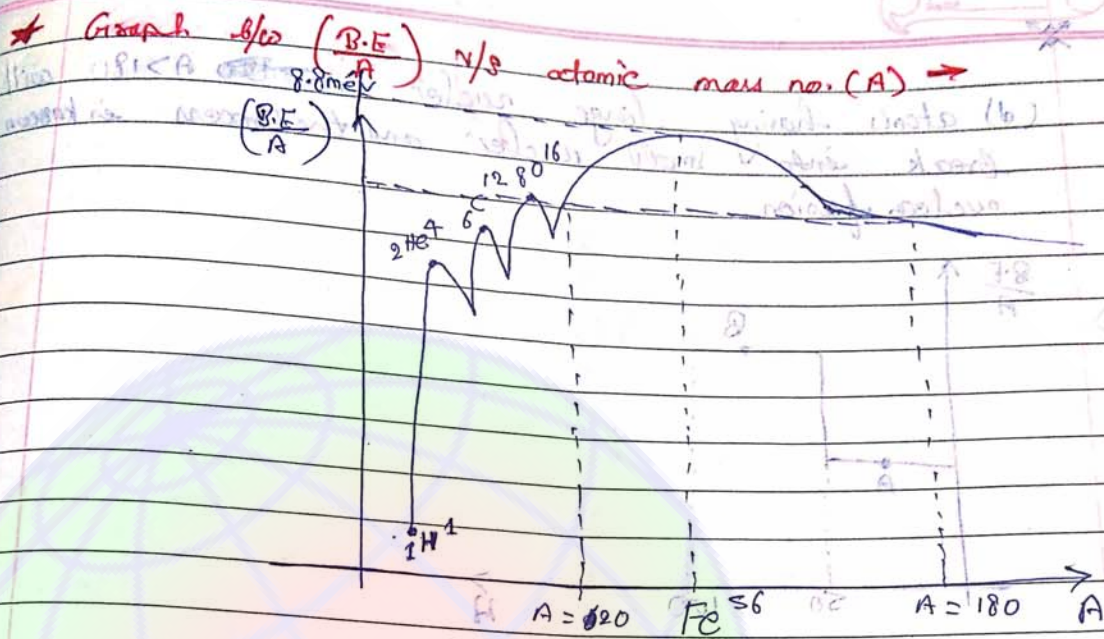 * Graph b/w (B.E/A) v/s atomic mass no. (A) →
8.8mev
(B.E/A)
2He4
6C12
8O16
1H1
A = 20
Fe56
A = 180
A